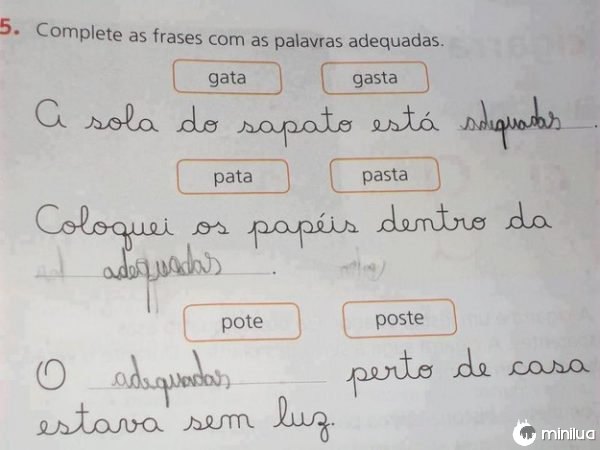 5. Complete as frases com as palavras adequadas.
gata gasta
A sola do sapato está adequadas.
pata pasta
Coloquei os papéis dentro da
adequadas.
pote poste
O adequadas perto de casa
estava sem luz.
minilua